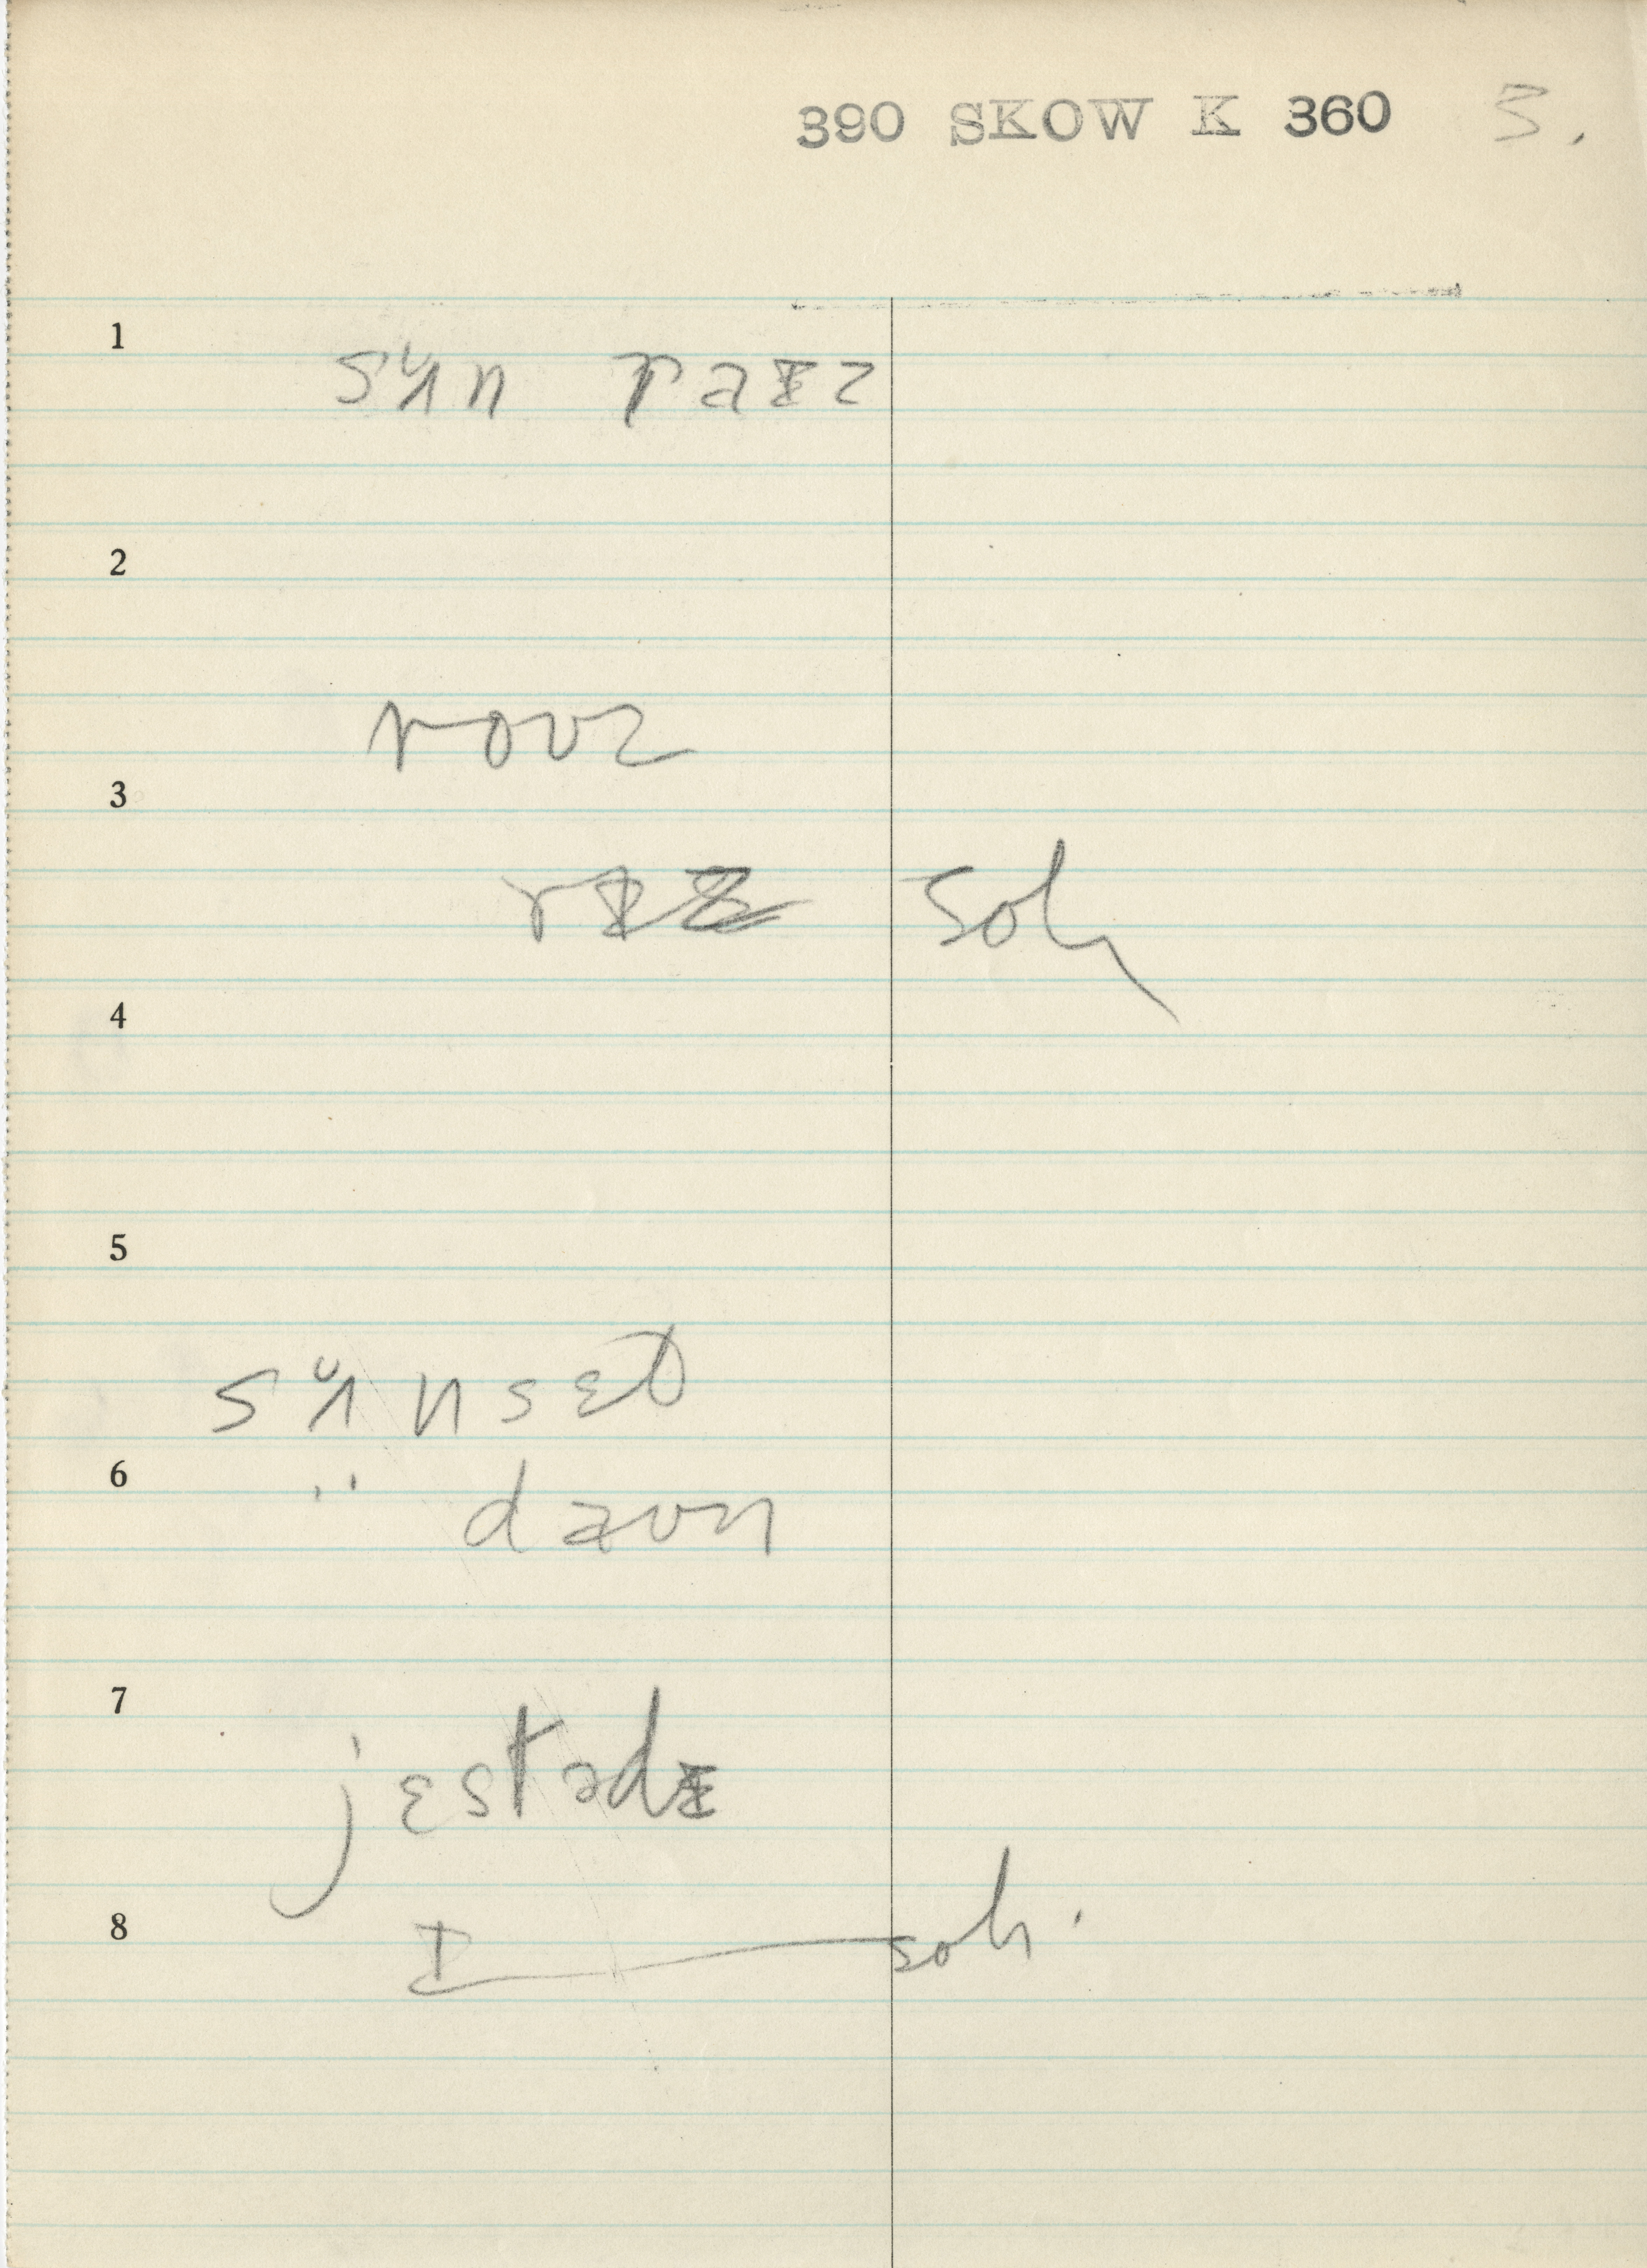 390 SKOW K 360 3.
1
sʌ̆n raɪz
2
rouz
3
rɪz soh
4
5
sʌ̆nsɛt
6
" daun
7
jɛstədɪ
8
I soh.